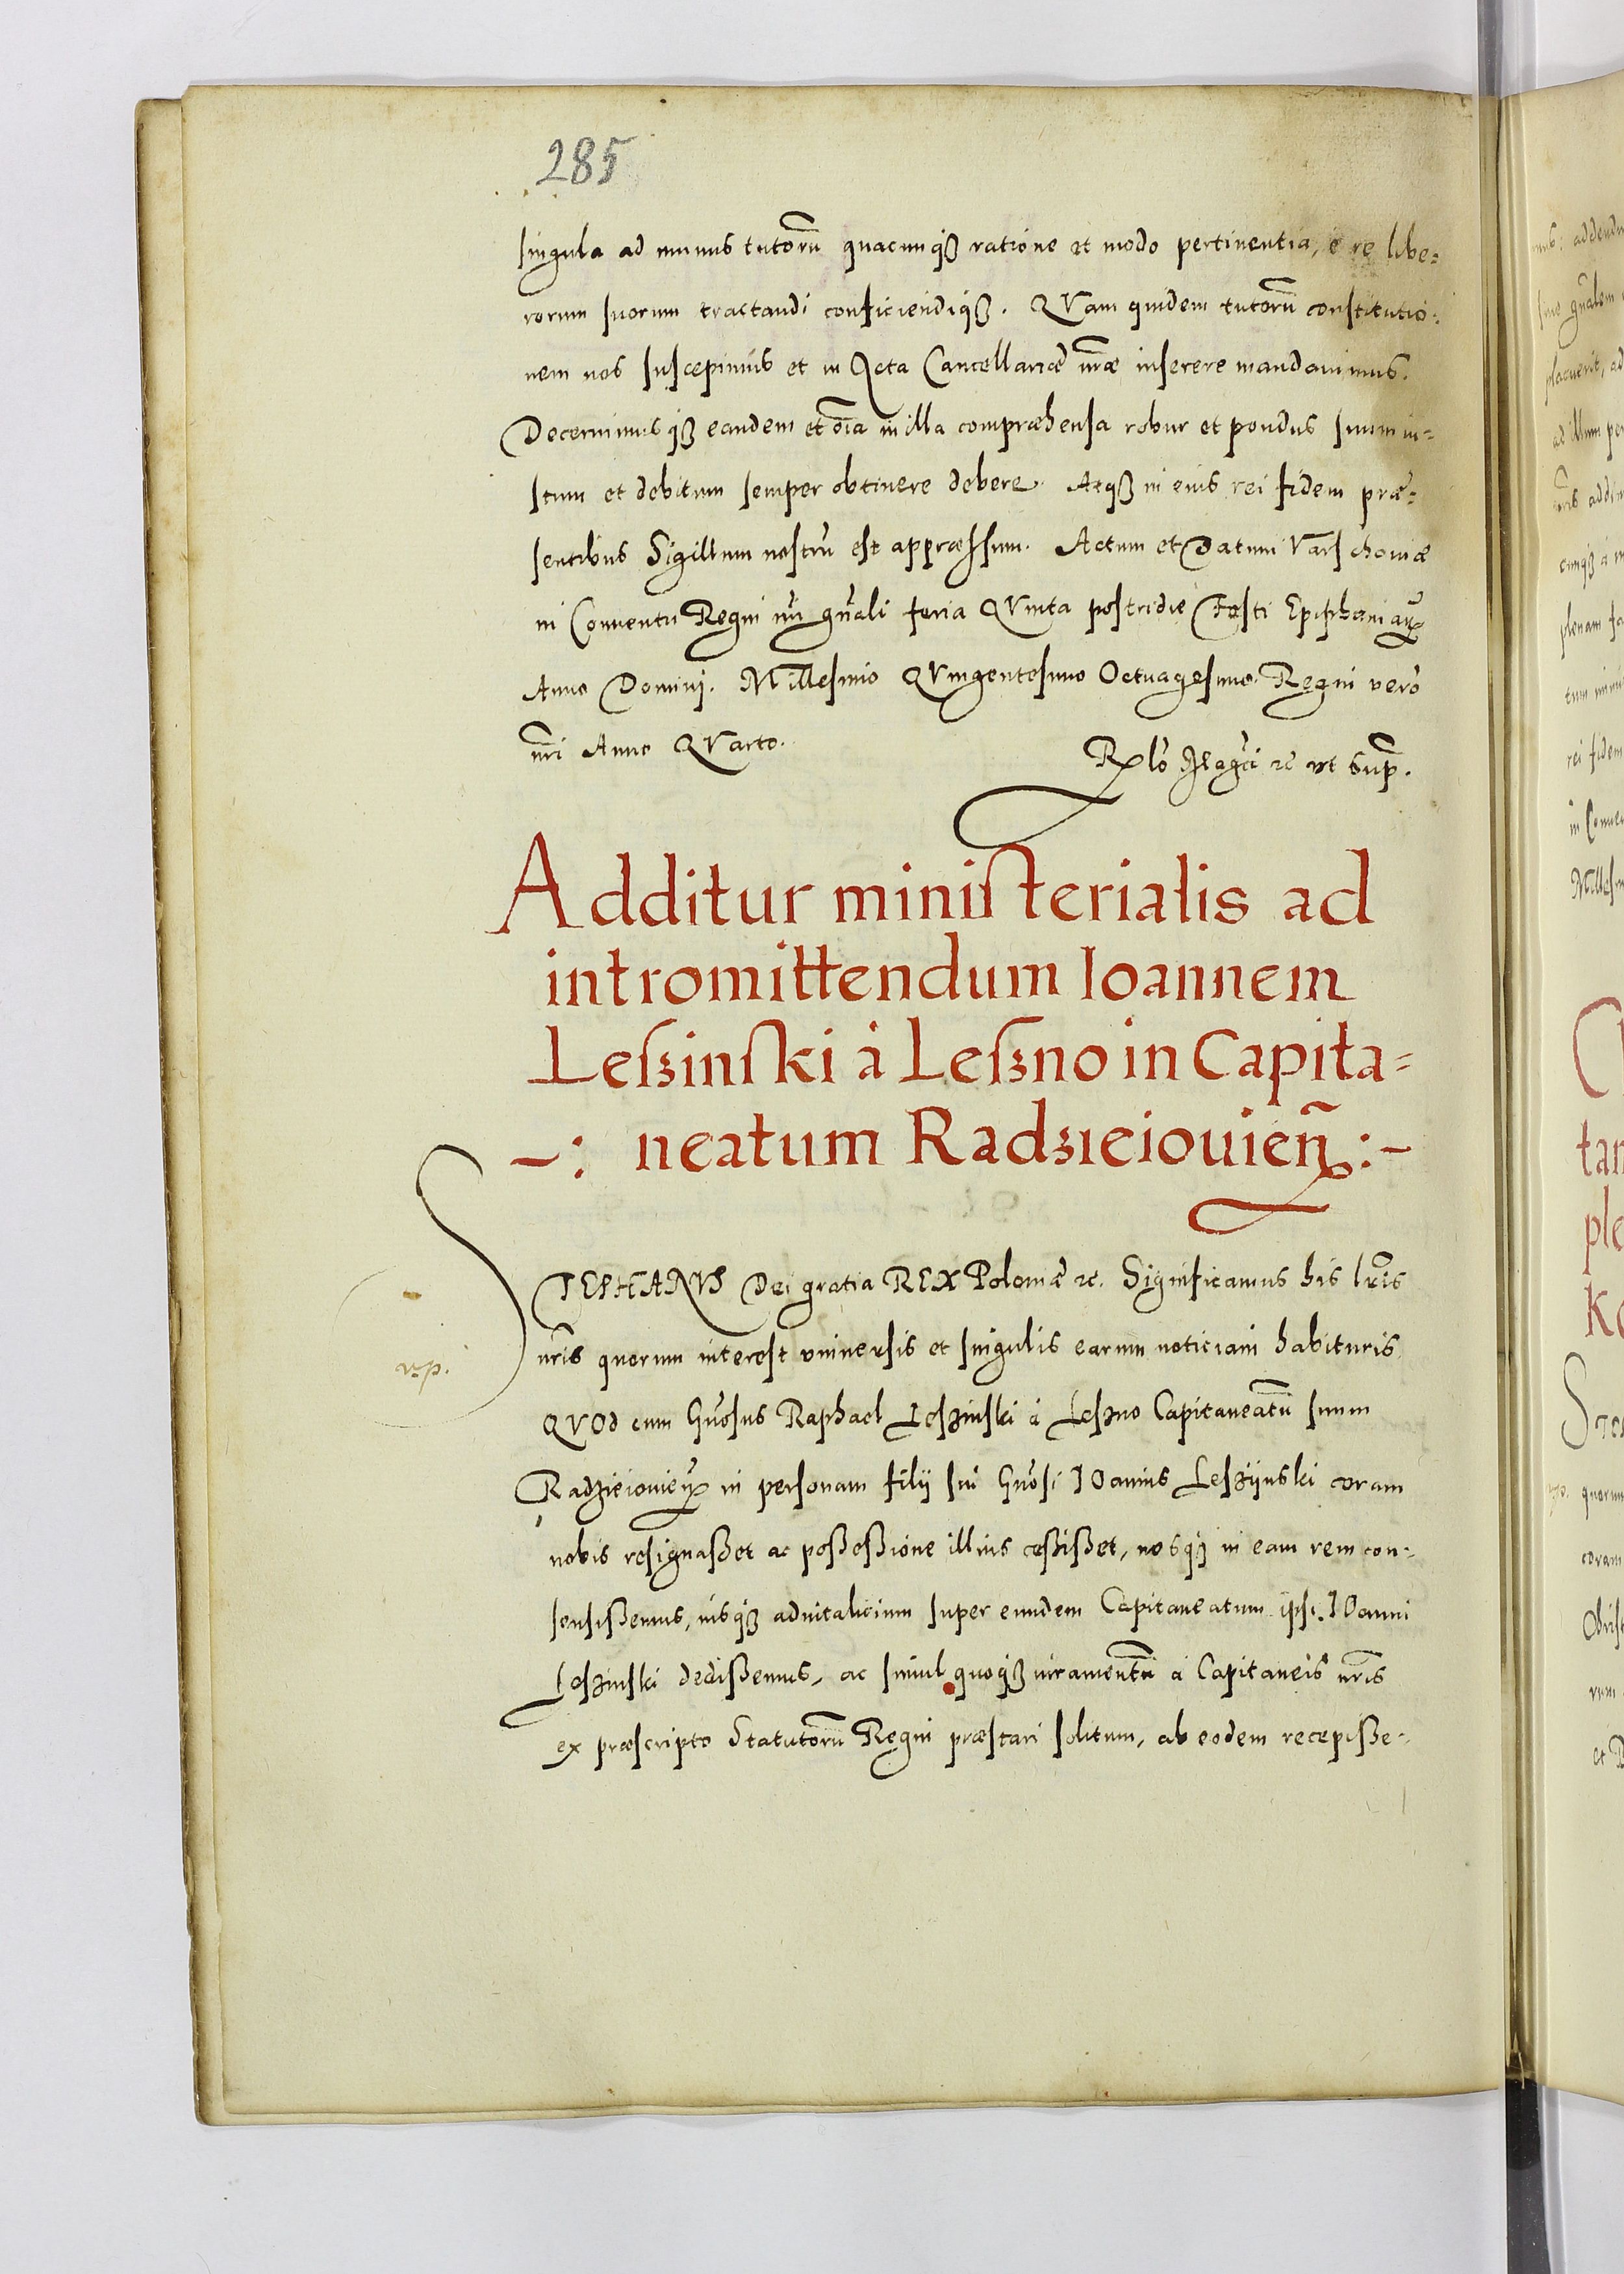 285
singula ad munus tutorũ quacunqȝ ratione et modo pertinentia, e re libe=
rorum suorum tractandi conficiendiqȝ. QVam quidem tutorũ constitutio:
nem nos suscepimus et in Acta Cancellariæ nr̃æ inserere mandauimus.
Decernimusqȝ eandem et oĩa in illa compræhensa robur et pondus suum iu=
stum et debitum semper obtinere debere. Atqȝ in eius rei fidem præ=
sentibus Sigillum nostrũ est appræssum. Actum et Datum Varschouiæ
in Conuentu Regni nr̃i gñali feria QVinta postridie Festi Epiphaniarꝝ
Anno Domini. Millesimo QVingentesimo Octuagesimo. Regni vero
nr̃i Anno QVarto.
Rlõ Magci ꝛc vt Supr.
Additur ministerialis ad
intromittendum Ioannem
Leszinski à Leszno in Capita=
-: neatum Radzieiouień :-
STEPHANVS Dei gratia REX Poloniæ ꝛc. Significamus his lr̃is
nr̃is quorum interest vniuersis et singulis earum noticiam habituris
r.p.
QVOd cum Gñosus Raphael Leszinski à Leszno Capitaneatũ suum
Radzieiouień in personam filij sui Gñosi IOannis Leszijnski coram
nobis resignaßet ac poßeßione illius ceßißet, nosqȝ in eam rem con:
sensißemus, iusqȝ aduitalicium super eundem Capitaneatum ipsi IOanni
Leszinski dedißemus, ac simul quoqȝ iuramentũ à Capitaneis nr̃is
ex præscripto Statutorũ Regni præstari solitum, ab eodem recepiße=